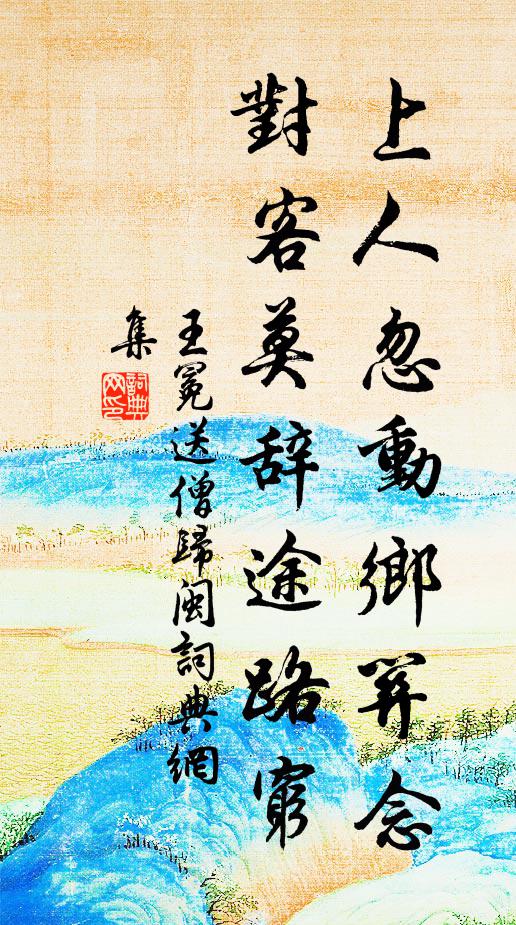 上人忽動鄉關念
對客莫辞途路窮
王冕送僧歸閩詞典網
集
詞典網印